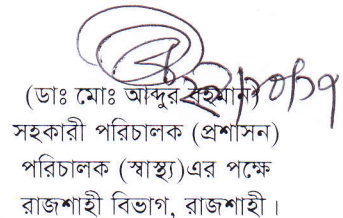 (ডাঃ মোঃ আব্দুর রহমান)
সহকারী পরিচালক (প্রশাসন)
পরিচালক (স্বাস্থ্য)এর পক্ষে
রাজশাহী বিভাগ, রাজশাহী।